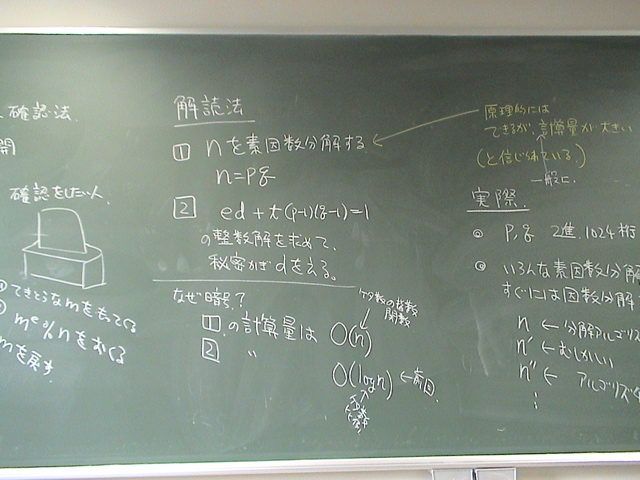 確認法
開
確認をしたい人
てきとうなmをもってくる
m^e%nをおくる
mを戻す
解読法
1 nを素因数分解する
n=pq
2 ed+t(p-1)(q-1)=1
の整数解を求めて、
秘密かぎdをえる。
なぜ暗号?
1の計算量は O(n)
ケタ数の指数
関数
2 〃 O(log n) ←前回
原理的には
できるが、計算量が大きい
(と信じられている)
一般に
実際
◎ p,q 2進、1024桁
◎ いろんな素因数分解
すぐには因数分解
n ← 分解アルゴリズ
n' ← むしかしい
n'' ← アルゴリズ
⋮